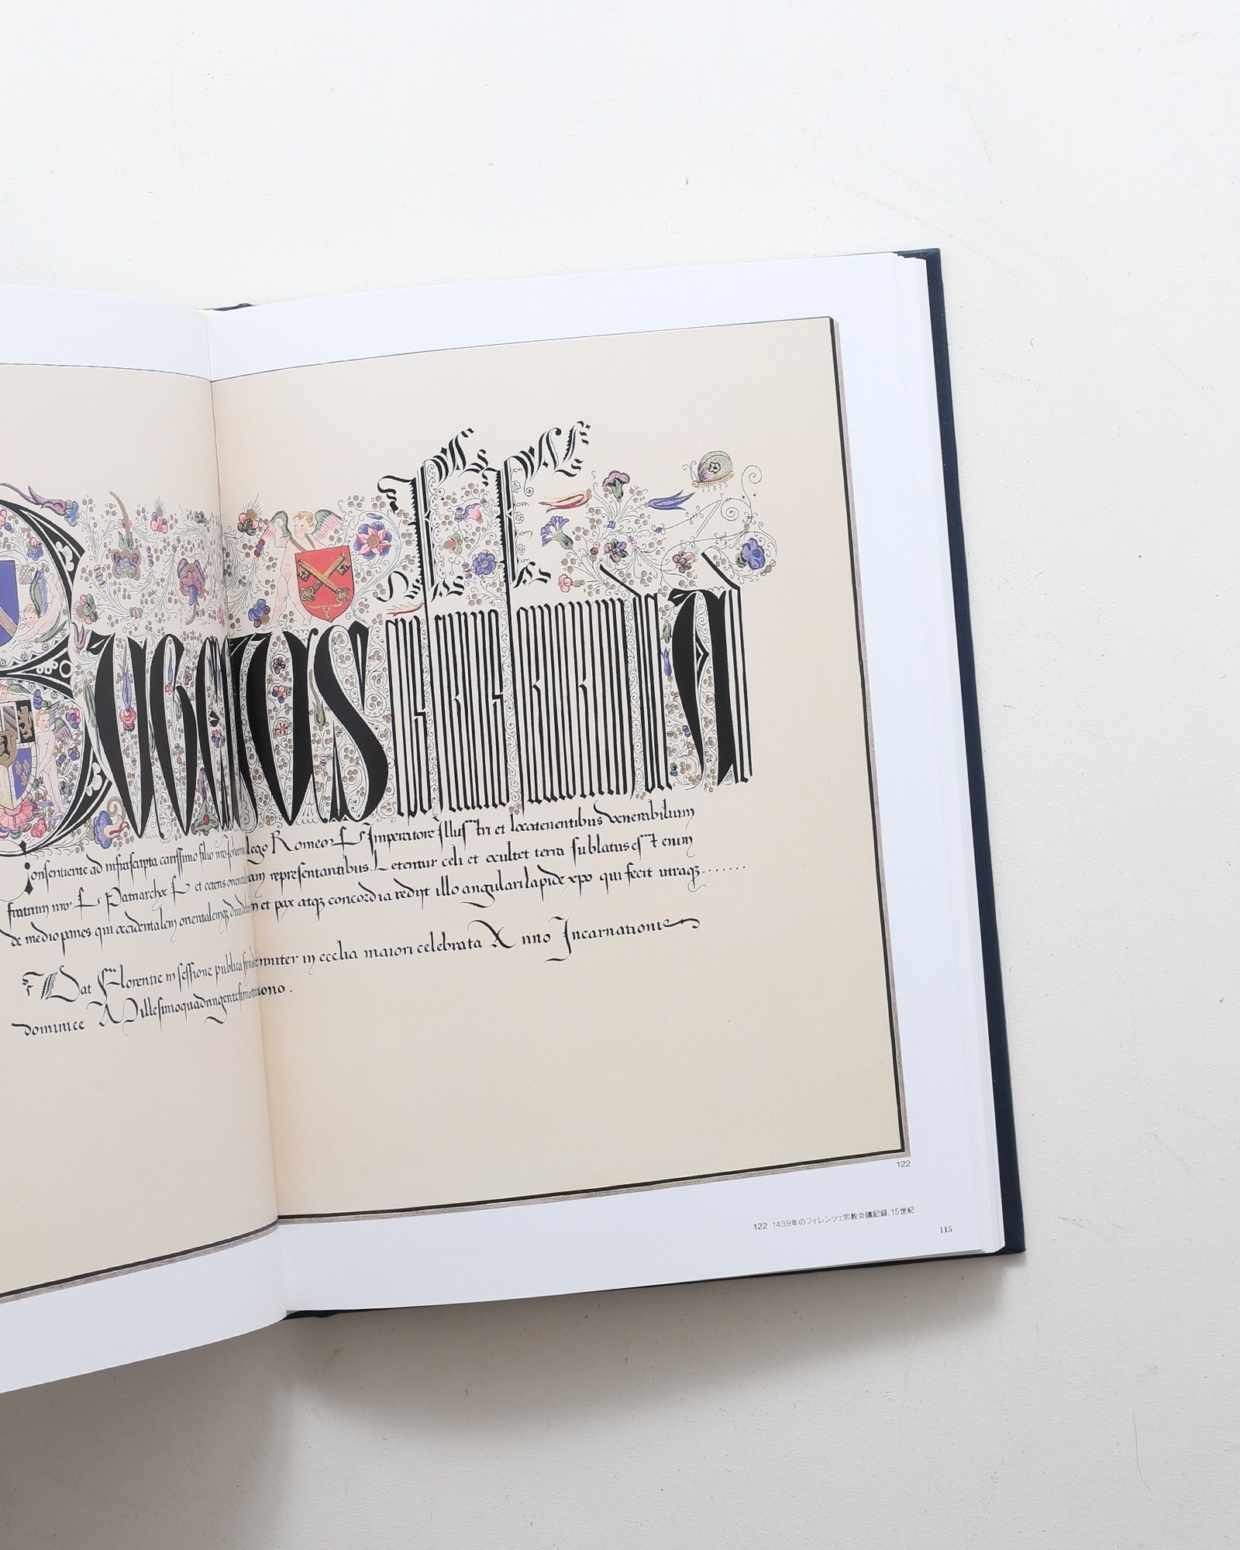 Eugenius
Consentiente ad infrascripta carissimo filio nro Johanne Paleologo Romeor Imperatore Illustri et locatenentibus Venerabilium
fratrum nror Patriarchar et ceteris orientalem representantibus Letentur celi et exultet terra sublatus est enim
de medio paries qui occidentalem orientalemq; dividebat et pax atq; concordia redijt illo angulari lapide xpo qui fecit utraq;.......
Dat Florentie in sessione publica sinodali solenniter in ecclia maiori celebrata Anno Incarnationis
dominice Millesimoquadringentesimo nono.
122
122 1439年のフィレンツェ宗教会議記録、15世紀
115